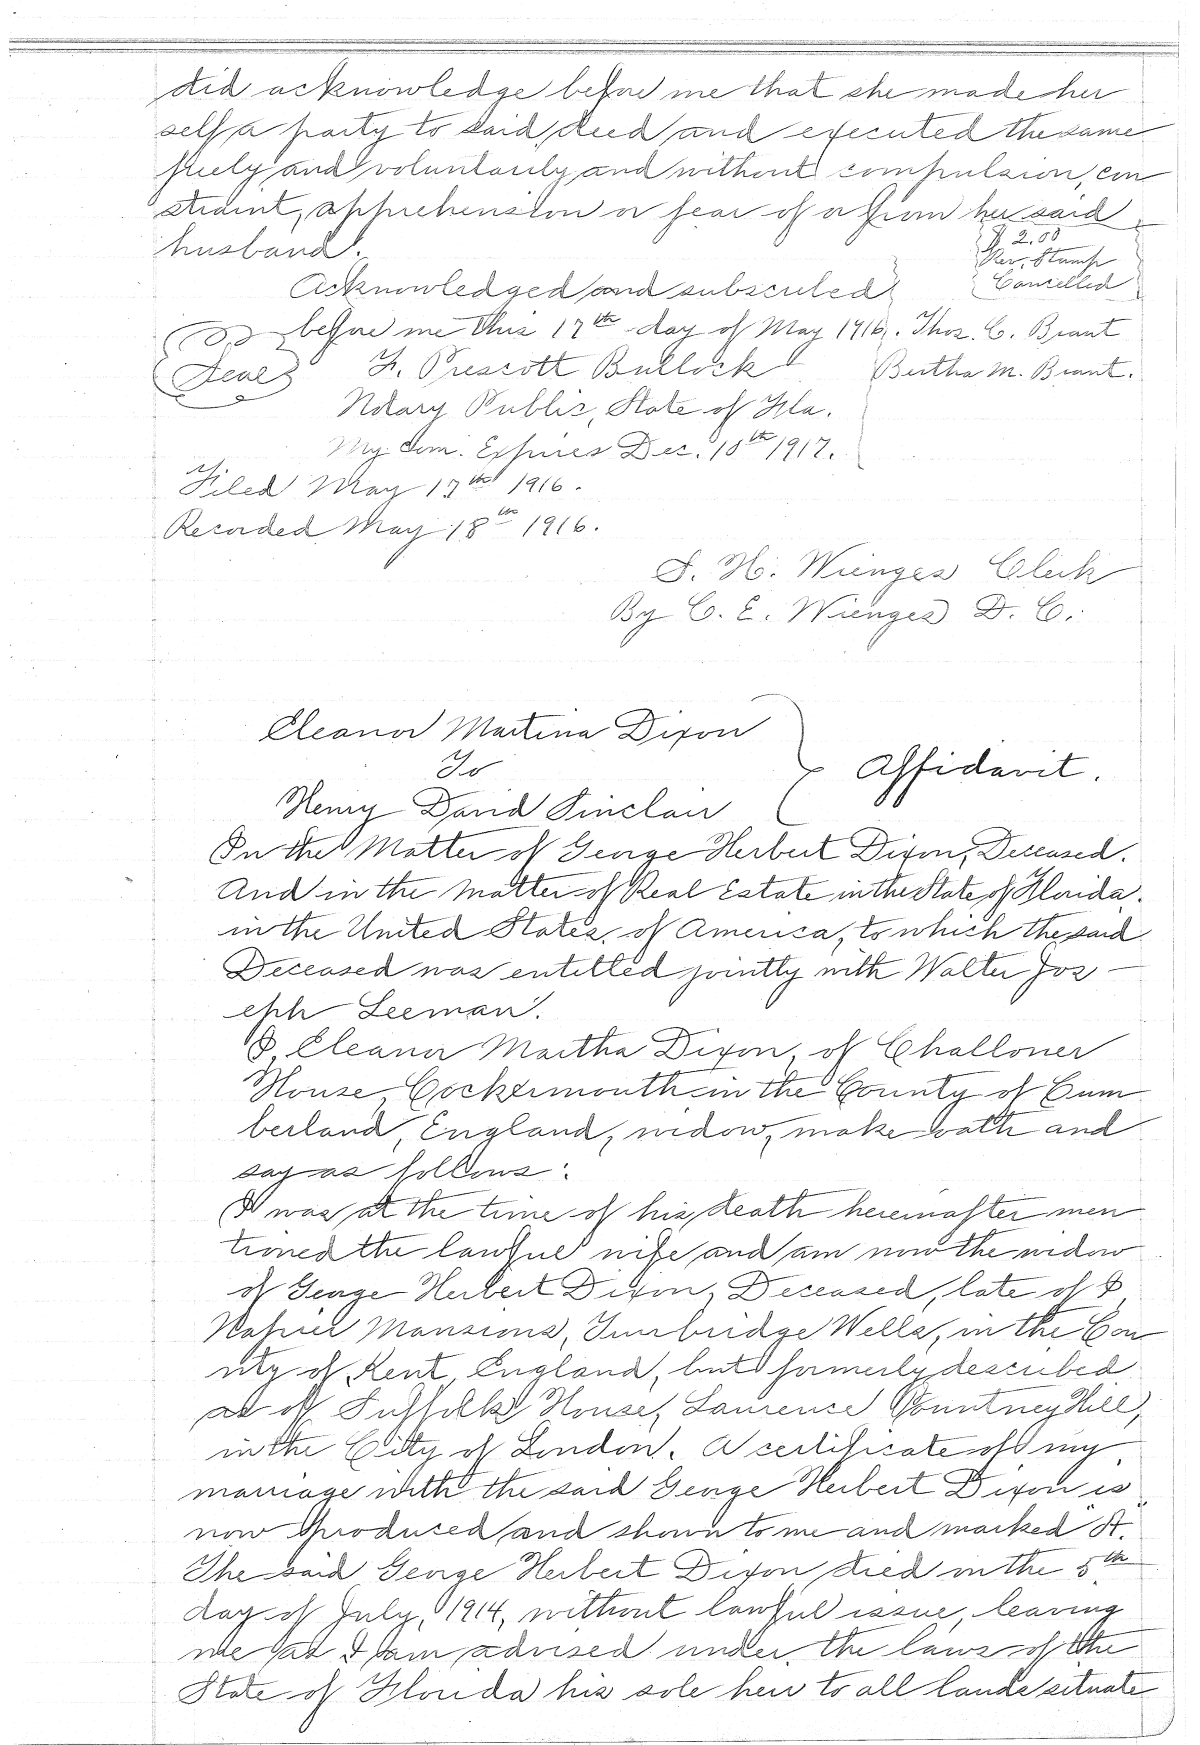 did acknowledge before me that she made her
self a party to said deed and executed the same
freely and voluntarily and without compulsion, con
straint, apprehension or fear of or from her said
husband.
$ 2.00
Rev. Stamp
Cancelled
Acknowledged and subscribed
before me this 17th day of May 1916. Thos. C. Brant
Seal F. Prescott Bullock Bertha M. Brant.
Notary Public, State of Fla.
My Com. Expires Dec. 10th 1917.
Filed May 17th 1916.
Recorded May 18th 1916.
S. H. Wienges Clerk
By C. E. Wienges D. C.
Eleanor Martina Dixon
To
Affidavit.
Henry David Sinclair
In the Matter of George Herbert Dixon, Deceased.
And in the matter of Real Estate in the State of Florida.
in the United States of America, to which the said
Deceased was entitled jointly with Walter Jos-
eph Leeman.
I, Eleanor Martha Dixon, of Challoner
House, Cockermouth in the County of Cum
berland, England, widow, make oath and
say as follows:
I was at the time of his death hereinafter men
tioned the lawful wife and am now the widow
of George Herbert Dixon, Deceased, late of
Napier Mansions, Tunbridge Wells, in the Cou
nty of Kent, England, but formerly described
as of Suffolk House, Laurence Pountney Hill,
in the City of London. A certificate of my
marriage with the said George Herbert Dixon is
now produced and shown to me and marked A.
The said George Herbert Dixon died in the 5th
day of July, 1914, without lawful issue, leaving
me as I am advised under the laws of the
State of Florida his sole heir to all lands situate